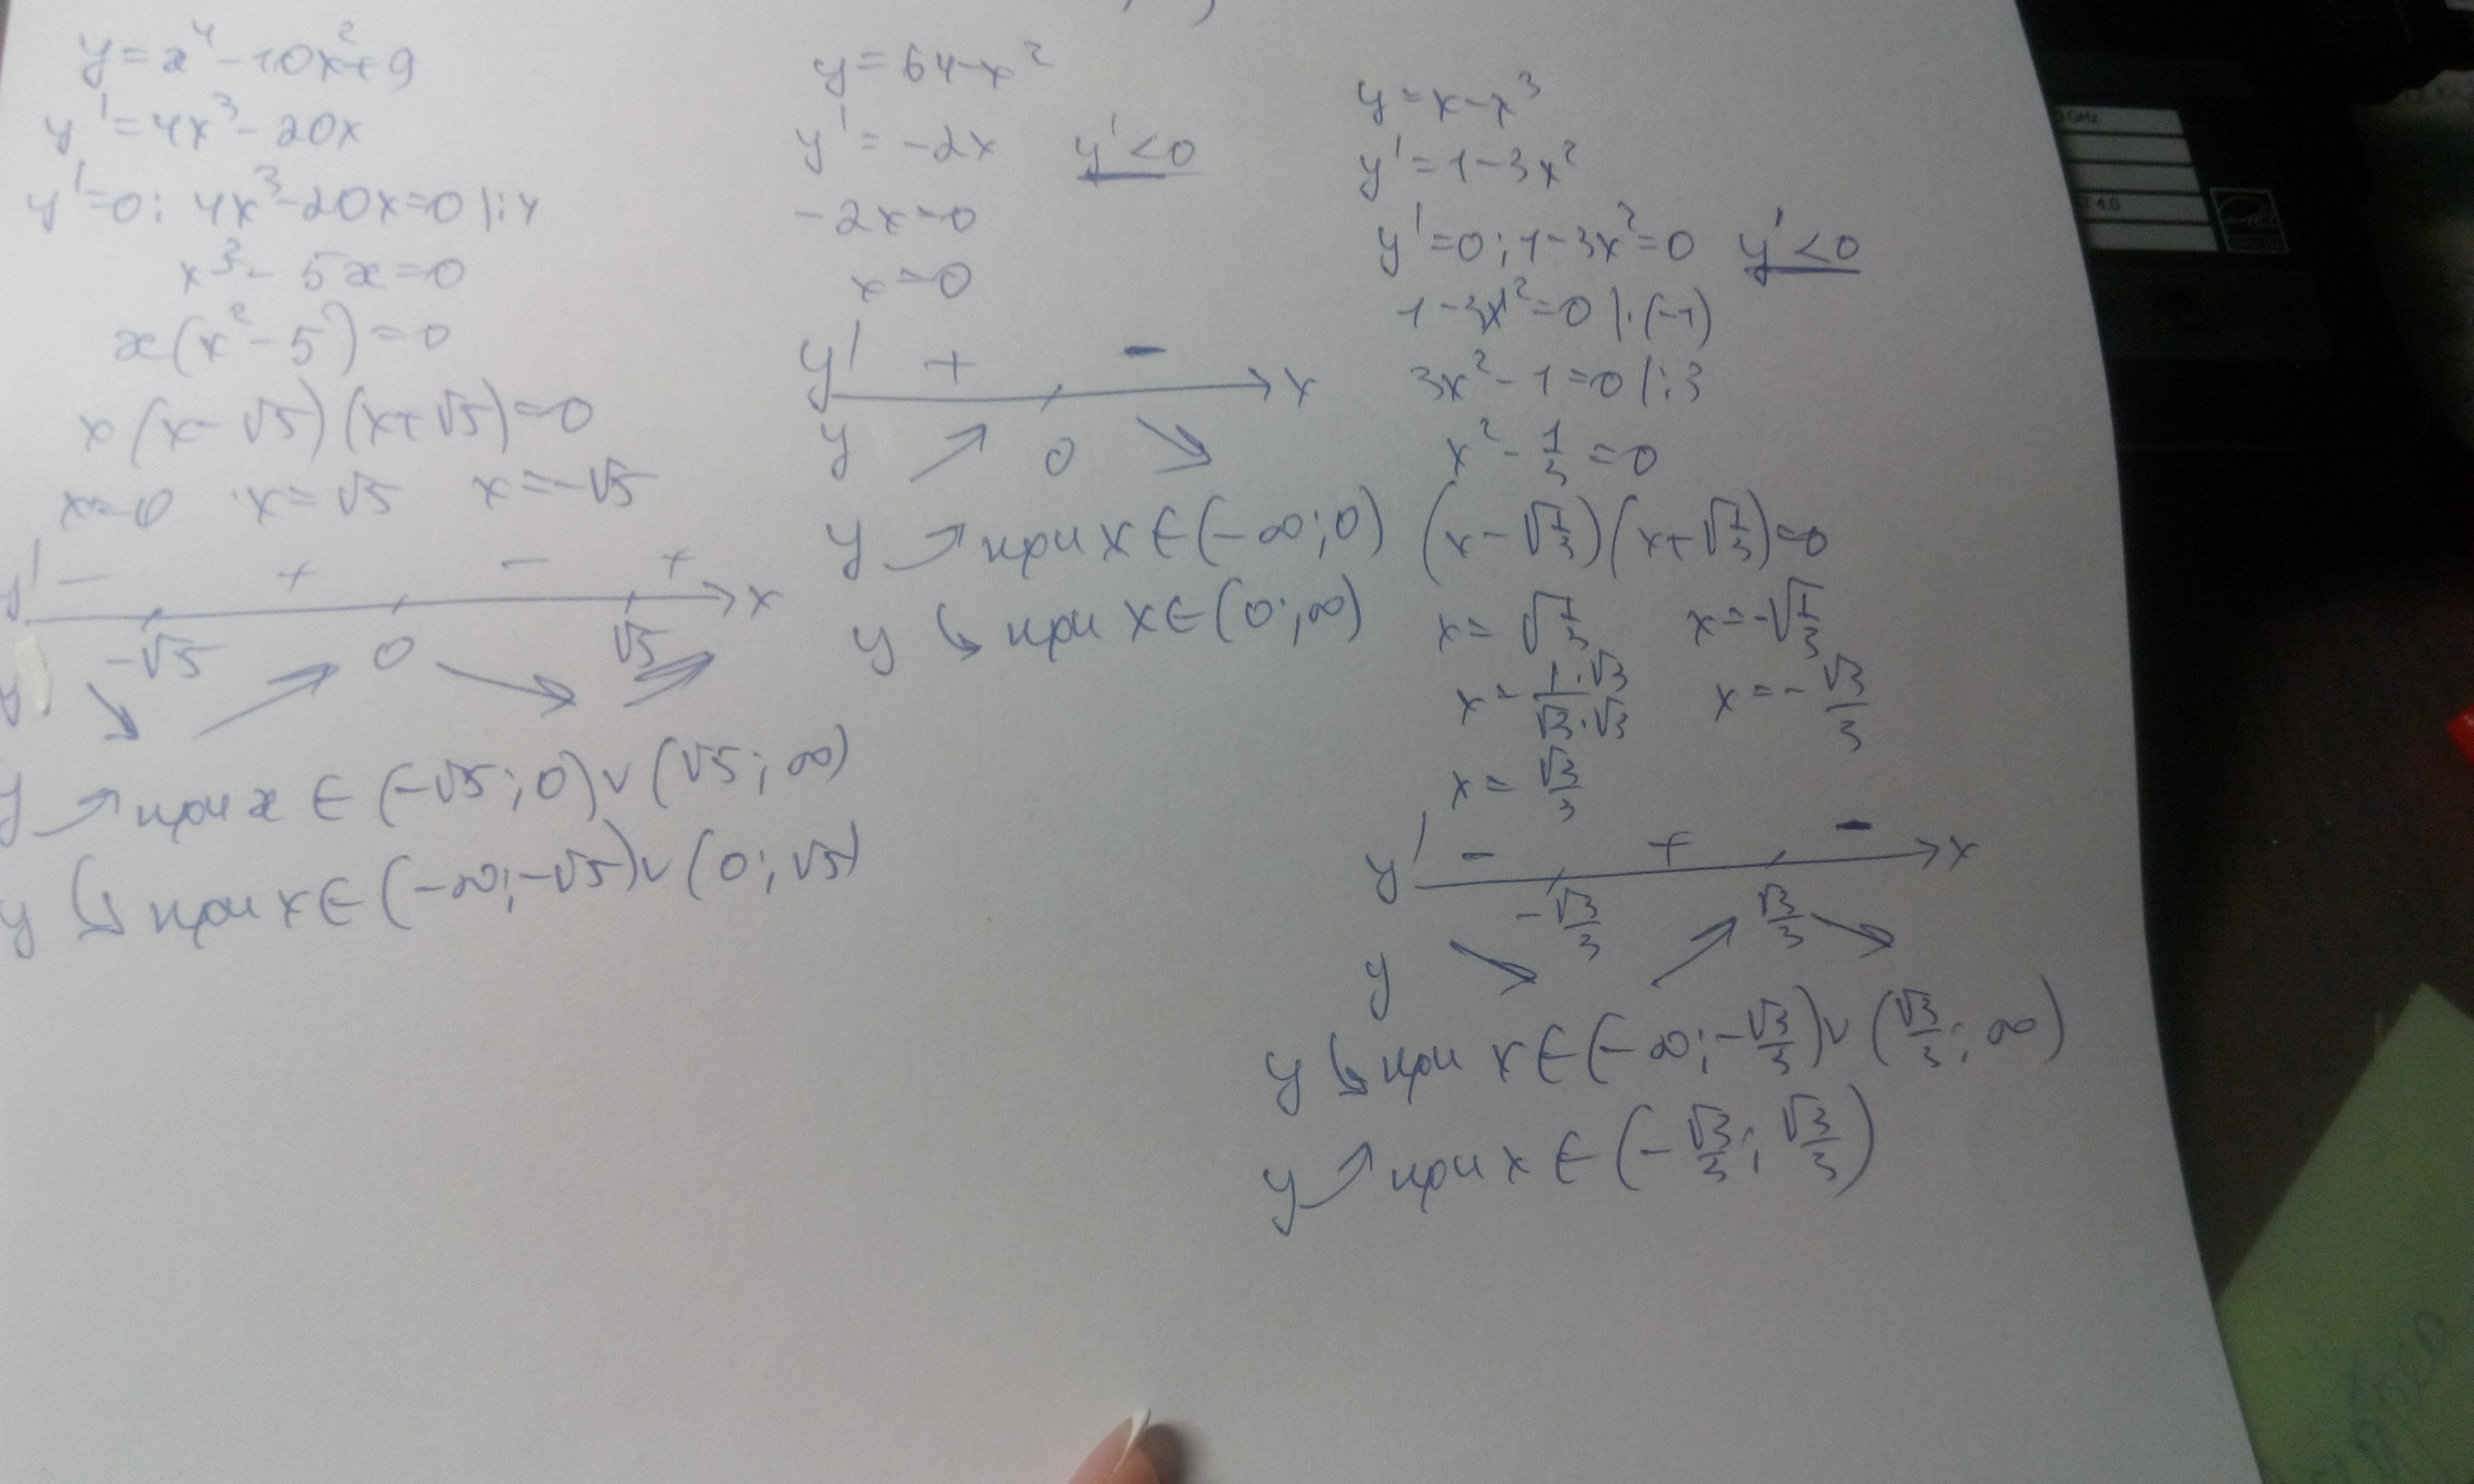 y = x⁴ - 10x² + 9
y' = 4x³ - 20x
y' = 0; 4x³ - 20x = 0 |:4
x³ - 5x = 0
x(x² - 5) = 0
x(x - √5)(x + √5) = 0
x = 0 x = √5 x = -√5
y' - + - + x
-√5 0 √5
y ↘ ↗ ↘ ↗
y ↗ при x ∈ (-√5; 0) ∨ (√5; ∞)
y ↘ при x ∈ (-∞; -√5) ∨ (0; √5)
y = 64 - x²
y' = -2x y' < 0
-2x = 0
x = 0
y' + - x
y ↗ 0 ↘
y ↗ при x ∈ (-∞; 0)
y ↘ при x ∈ (0; ∞)
y = x - x³
y' = 1 - 3x²
y' = 0; 1 - 3x² = 0 y' < 0
1 - 3x² = 0 |·(-1)
3x² - 1 = 0 |:3
x² - 1/3 = 0
(x - √1/3)(x + √1/3) = 0
x = √1/3 x = -√1/3
x = 1·√3/√3·√3 x = - √3/3
x = √3/3
y' - + - x
-√3/3 √3/3
y ↘ ↗ ↘
y ↘ при x ∈ (-∞; -√3/3) ∨ (√3/3; ∞)
y ↗ при x ∈ (-√3/3; √3/3)
GHz
4.0